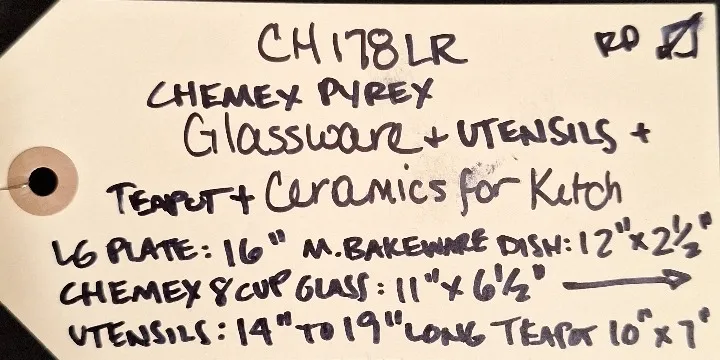 CH178LR RD
CHEMEX PYREX
Glassware + UTENSILS +
TEAPOT + Ceramics for Ketch
LG PLATE: 16" M.BAKEWARE DISH: 12" x 2½"
CHEMEX 8 CUP GLASS: 11" x 6½" →
UTENSILS: 14" TO 19" LONG TEAPOT 10" x 7"